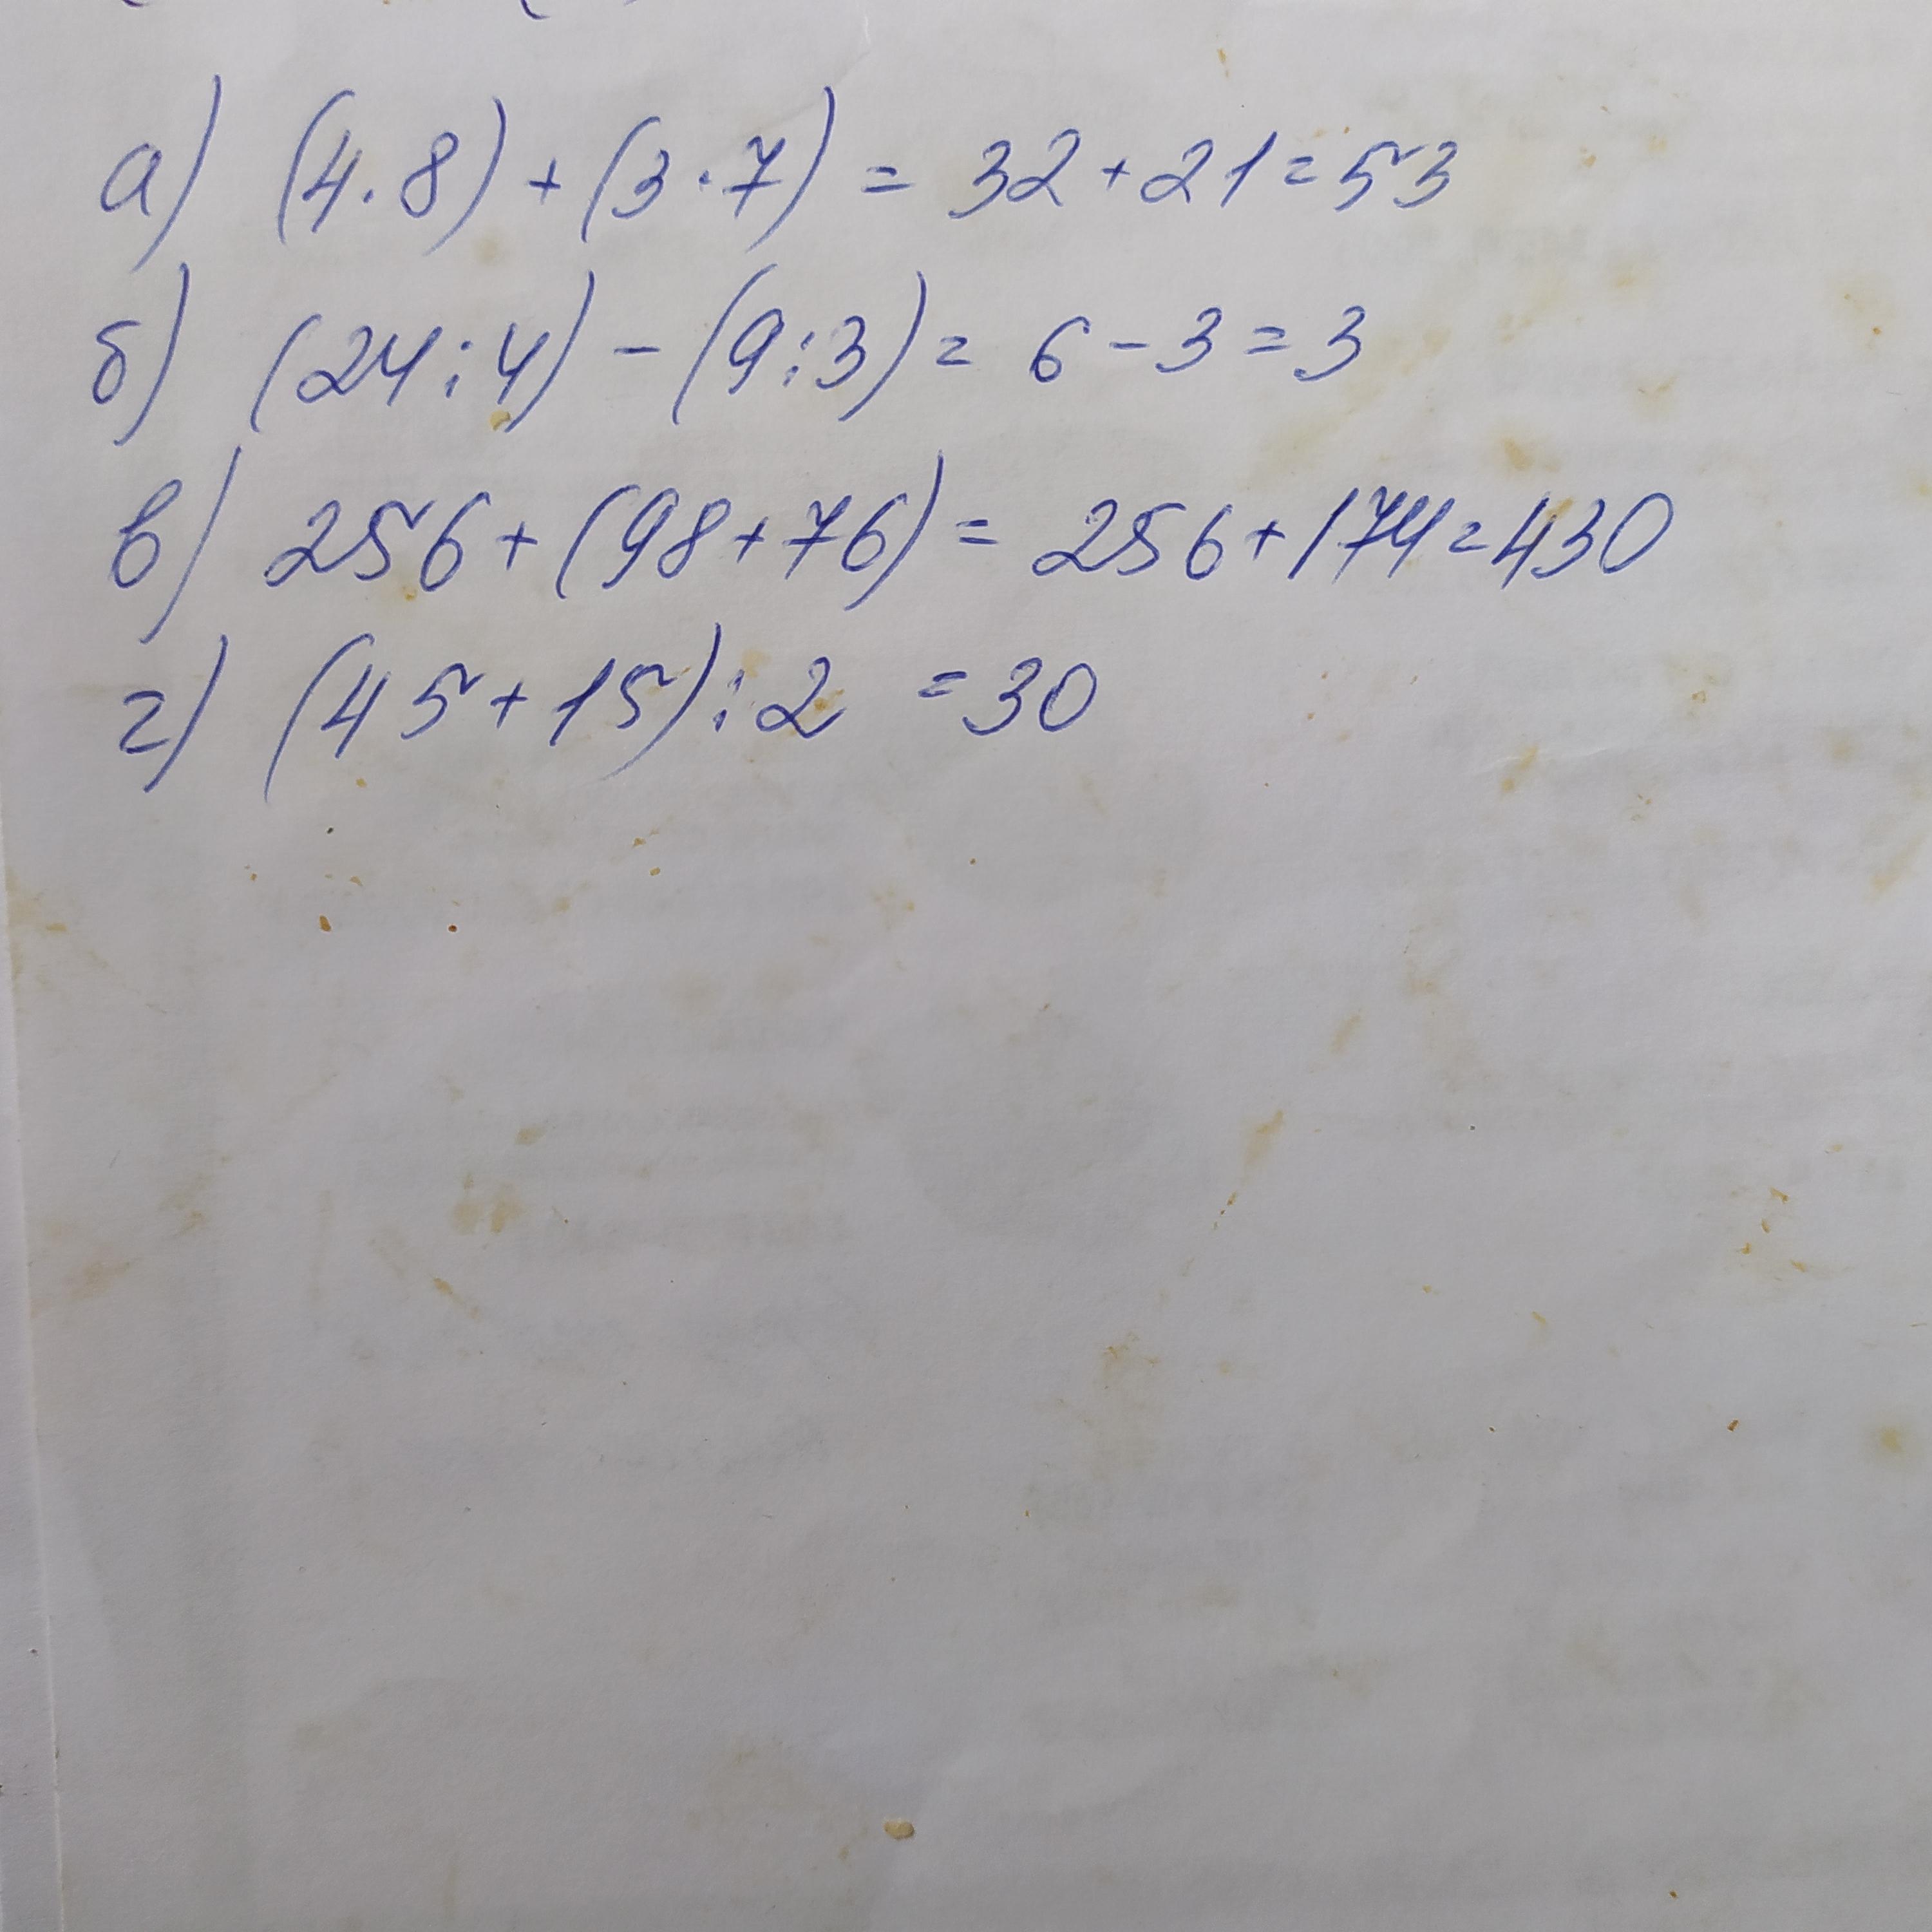 а) (4·8)+(3·7) = 32+21=53
б) (24:4)-(9:3)= 6-3=3
в) 256+(98+76)= 256+174=430
г) (45+15):2 =30